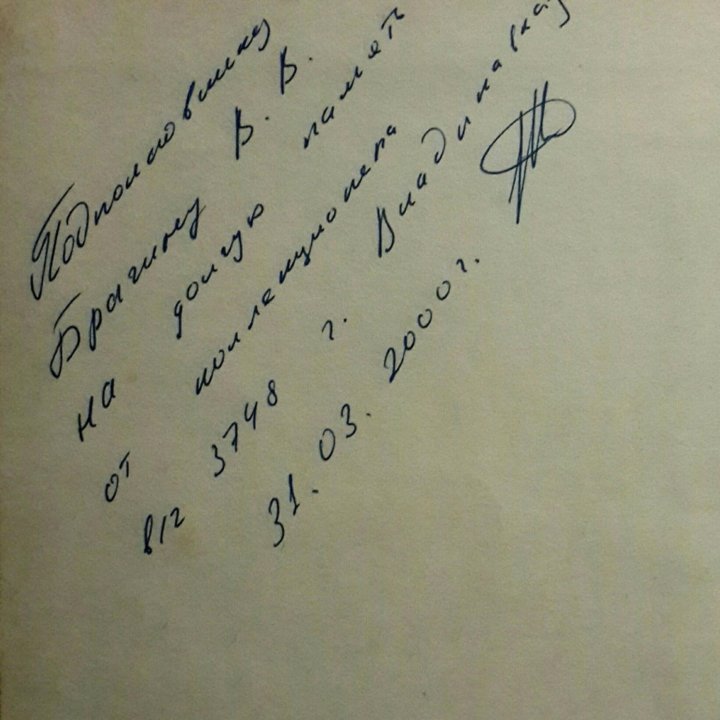 Подполковнику
Брагину В. В.
на долгую память
от коллекционера
в/г 3748 г. Владикавказ
31. 03. 2000г.